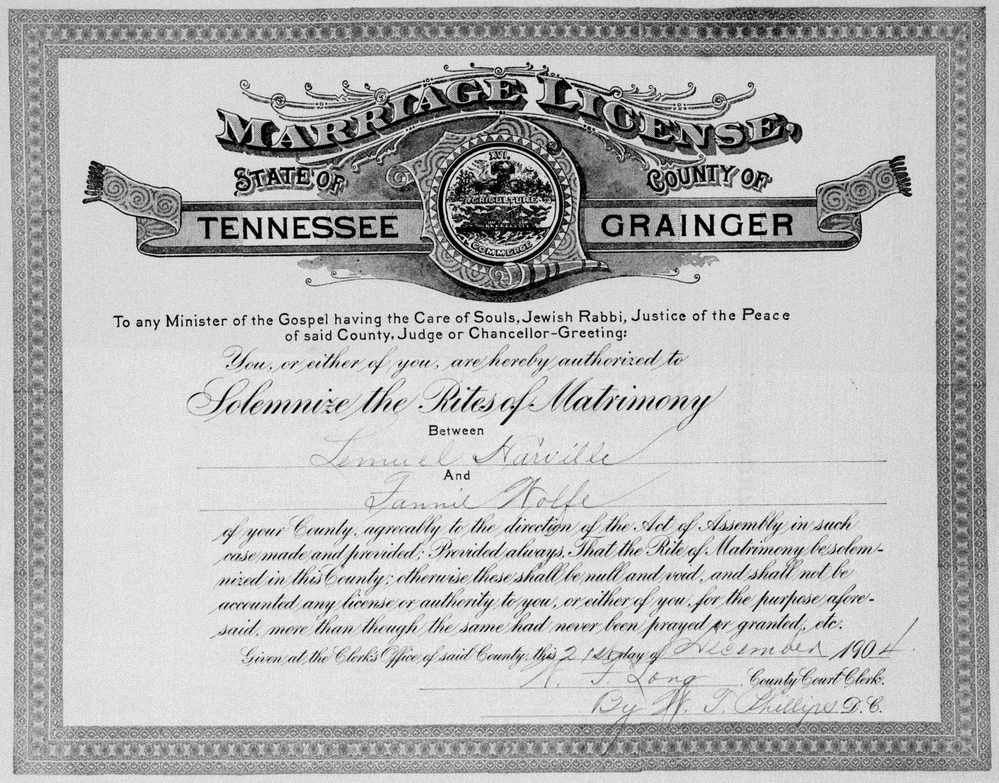 MARRIAGE LICENSE,
STATE OF
COUNTY OF
TENNESSEE
GRAINGER
XVI.
AGRICULTURE
COMMERCE
To any Minister of the Gospel having the Care of Souls, Jewish Rabbi, Justice of the Peace
of said County, Judge or Chancellor-Greeting:
You, or either of you, are hereby authorized to
Solemnize the Rites of Matrimony
Between
Lemuel Harville
And
Fannie Wolfe
of your County, agreeably to the direction of the Act of Assembly in such
case made and provided; Provided always, That the Rite of Matrimony be solem-
nized in this County; otherwise these shall be null and void, and shall not be
accounted any license or authority to you, or either of you, for the purpose afore-
said, more than though the same had never been prayed or granted, etc.
Given at the Clerk's Office of said County, this 21st day of December 1904
F. Long County Court Clerk.
By W. T. Phillips D.C.